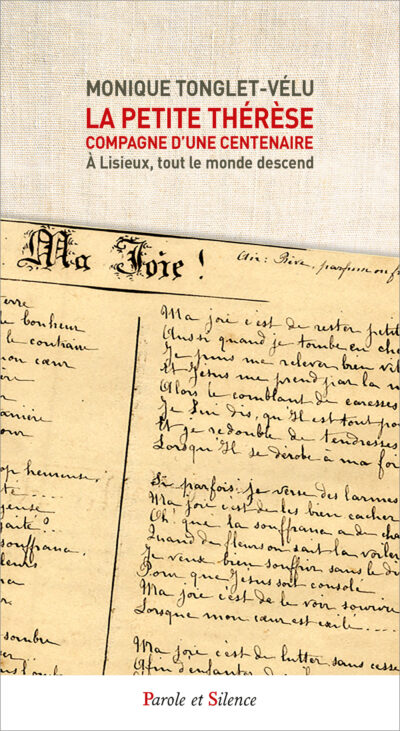 MONIQUE TONGLET-VÉLU
LA PETITE THÉRÈSE
COMPAGNE D'UNE CENTENAIRE
À Lisieux, tout le monde descend
Ma Joie !
Air : Rêve, parfum ou fr
erre
le bonheur
le contraire
mon cœur
ère
ar
anière
our
op heureuse,
te ....
geuse
gaîté ?
souffrance,
leurs
na
sombre
Ma joie c'est de rester petit
Aussi quand je tombe en che
Je puis me relever bien vit
Et Jésus me prend par la m
Alors le comblant de caresses
Je Lui dis, qu'Il est tout pou
Et je redouble de tendresses
Lorsqu'Il se dérobe à ma foi
Si parfois je verse des larmes
Ma joie c'est de les bien cacher
Oh ! que la souffrance a de cha
Quand de fleurs on sait la voiler
Je veux bien souffrir sans le di
Pour que Jésus soit consolé
Ma joie c'est de le voir sourire
Lorsque mon cœur est exilé ....
Ma joie c'est de lutter sans cesse
Afin d'enfanter de
Parole et Silence